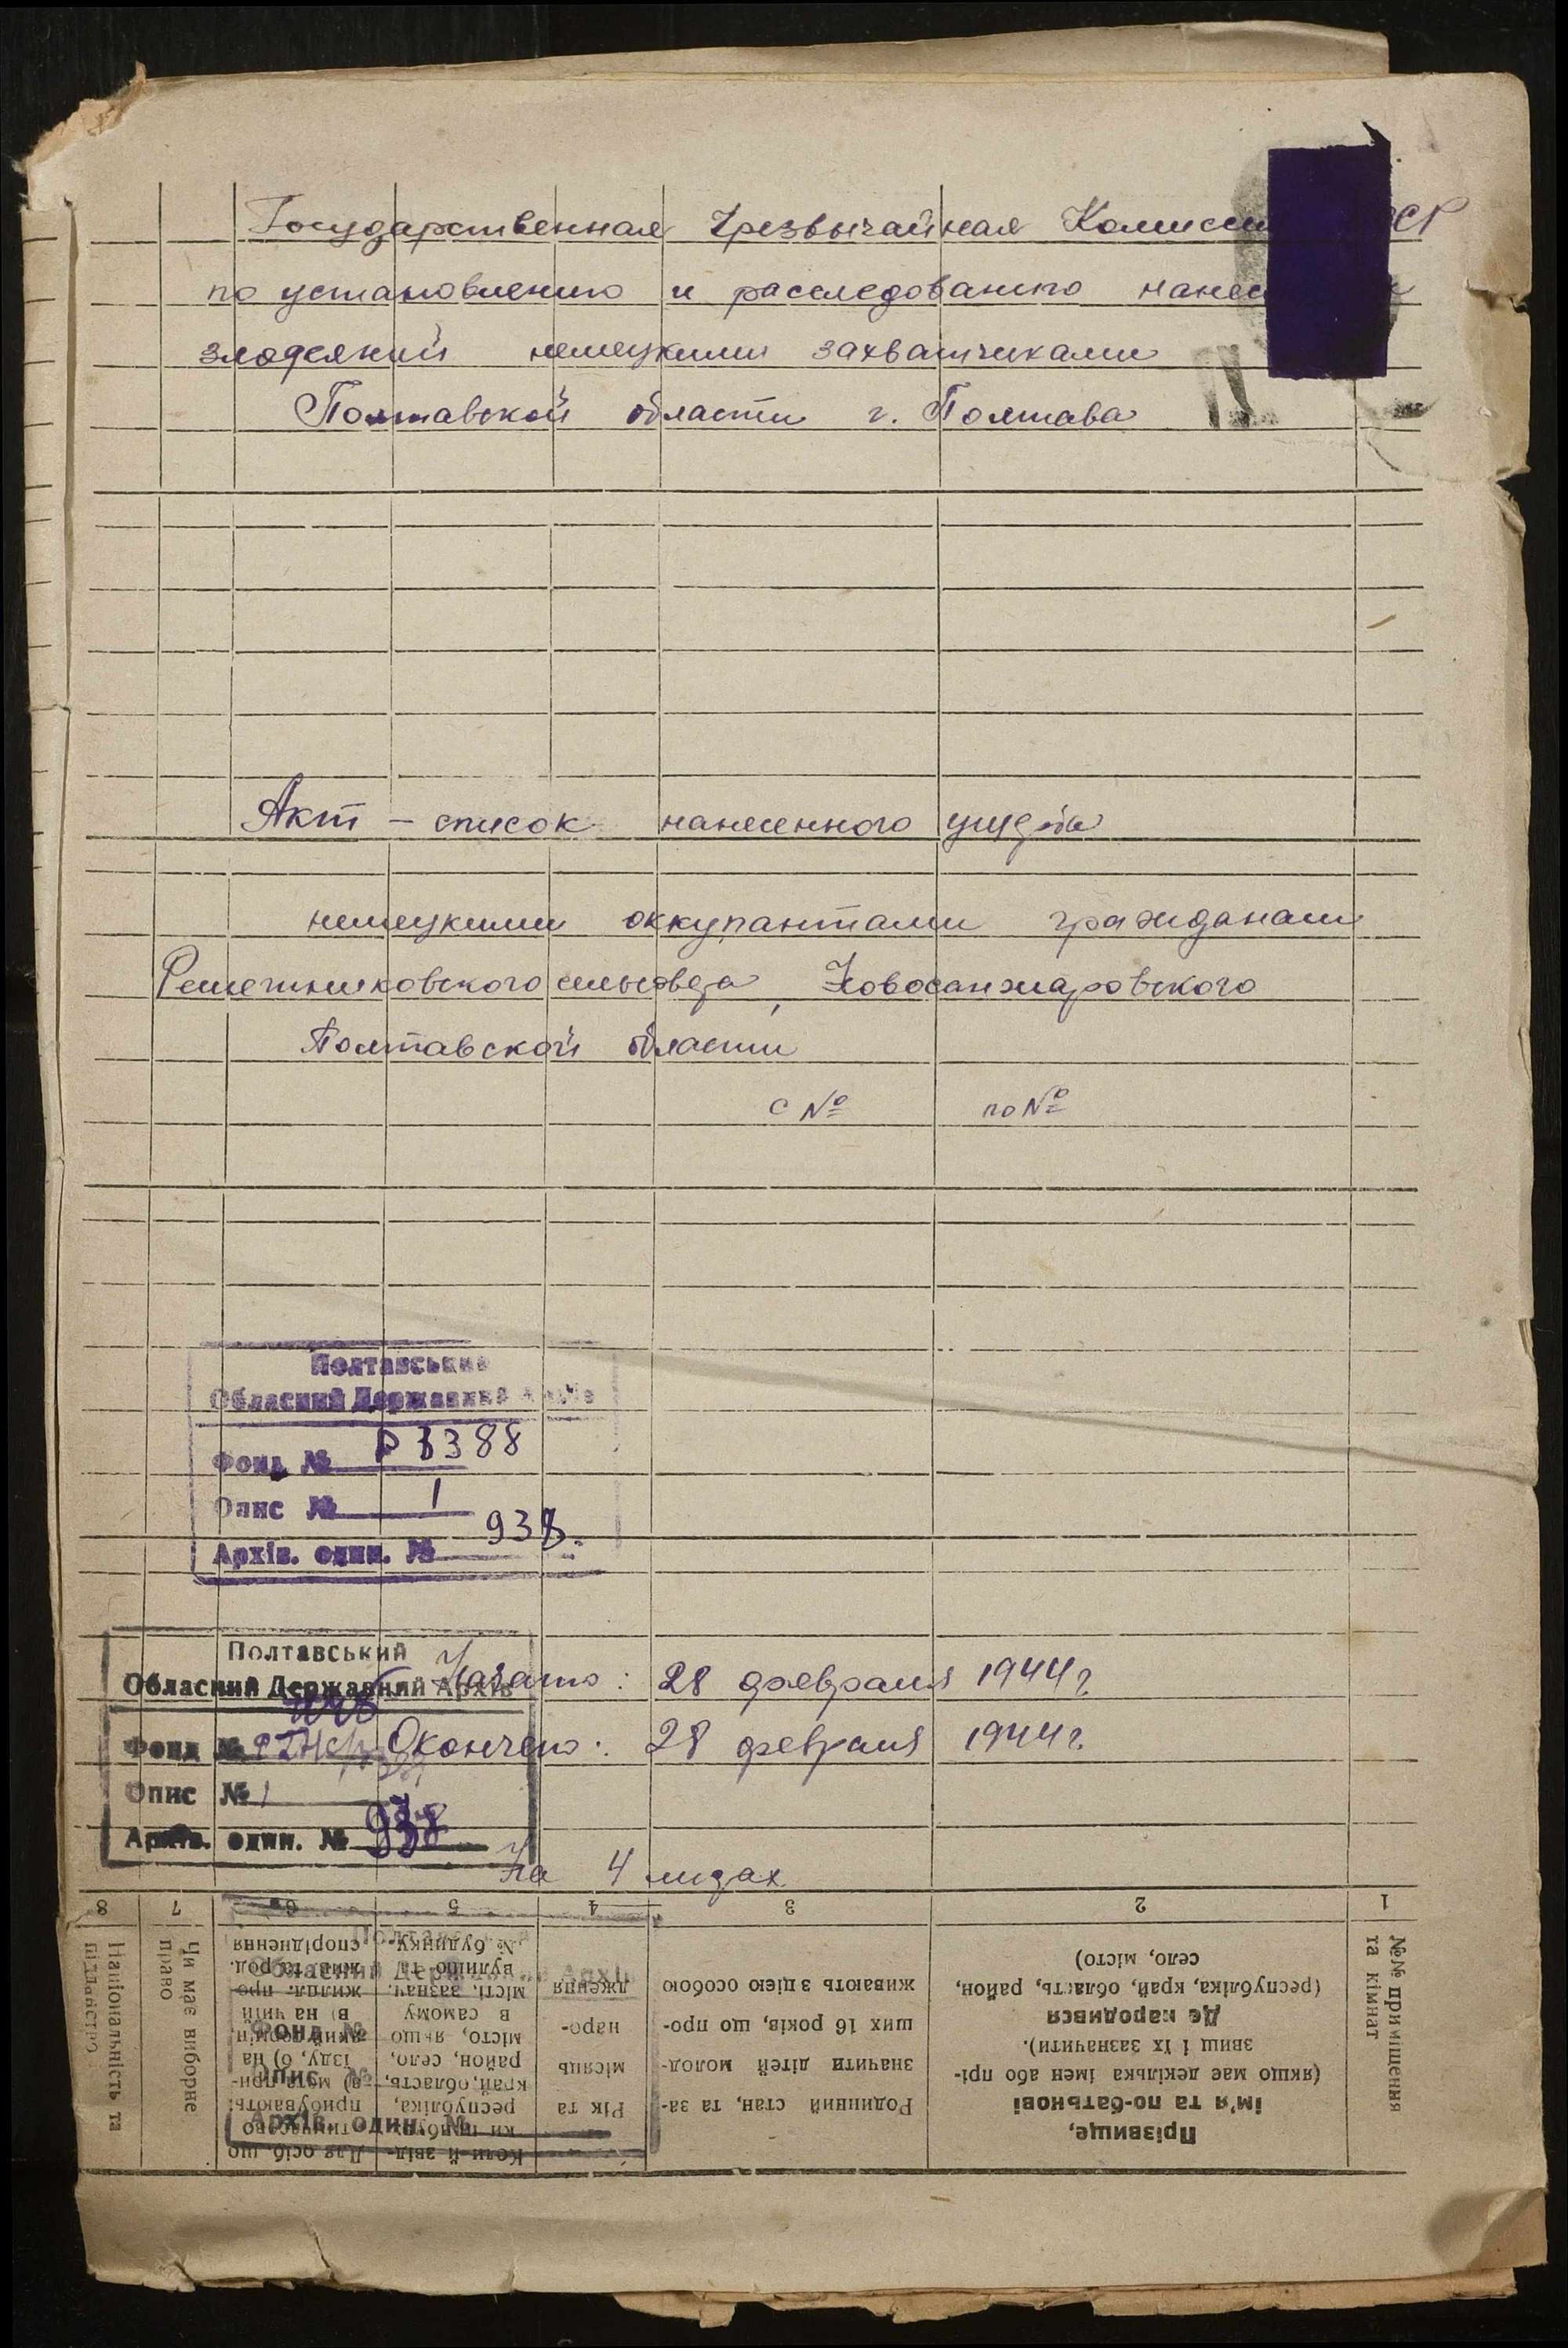 Государственная Чрезвычайная
по установлению и расследованию
злодеяний немецкими захватчиками
Полтавской области г. Полтава
Акт – список нанесенного ущерба
немецкими оккупантами гражданам
Решетниковского сельсовета, Новосанжаровского
Полтавской области
с № по №
Полтавський
Обласний Державний
Фонд № Р 3388
Опис № 1
Архів. один. №
Полтавський
Обласний Державний Архів
Начато: 28 февраля 1944 г.
Фонд №
Окончено: 28 февраля 1944 г.
Опис № 1
Архів. один. №
На 4 лицах
1 2 3 4 5 6 7 8
№№ приміщення та кімнат
Прізвище,
ім'я та по-батькові
(якщо має декілька імен або прі-
звищ і їх зазначити).
Де народився
(республіка, край, область, район,
село, місто)
Родинний стан, та за-
значити дітей молод-
ших 16 років, що про-
живають з цією особою
Рік та
місяць
наро-
дження
Коли й звід-
республіка,
край, область,
район, село,
місто, якщо
в самому
місті, зазнач.
вулицю та
№ будинку.
Для осіб, що
тимчасово
прибувають:
Чи має виборче право
Національність та підданство
Полтавський
Обласний Державний Архів
Фонд №
Опис №
Архів. один. №